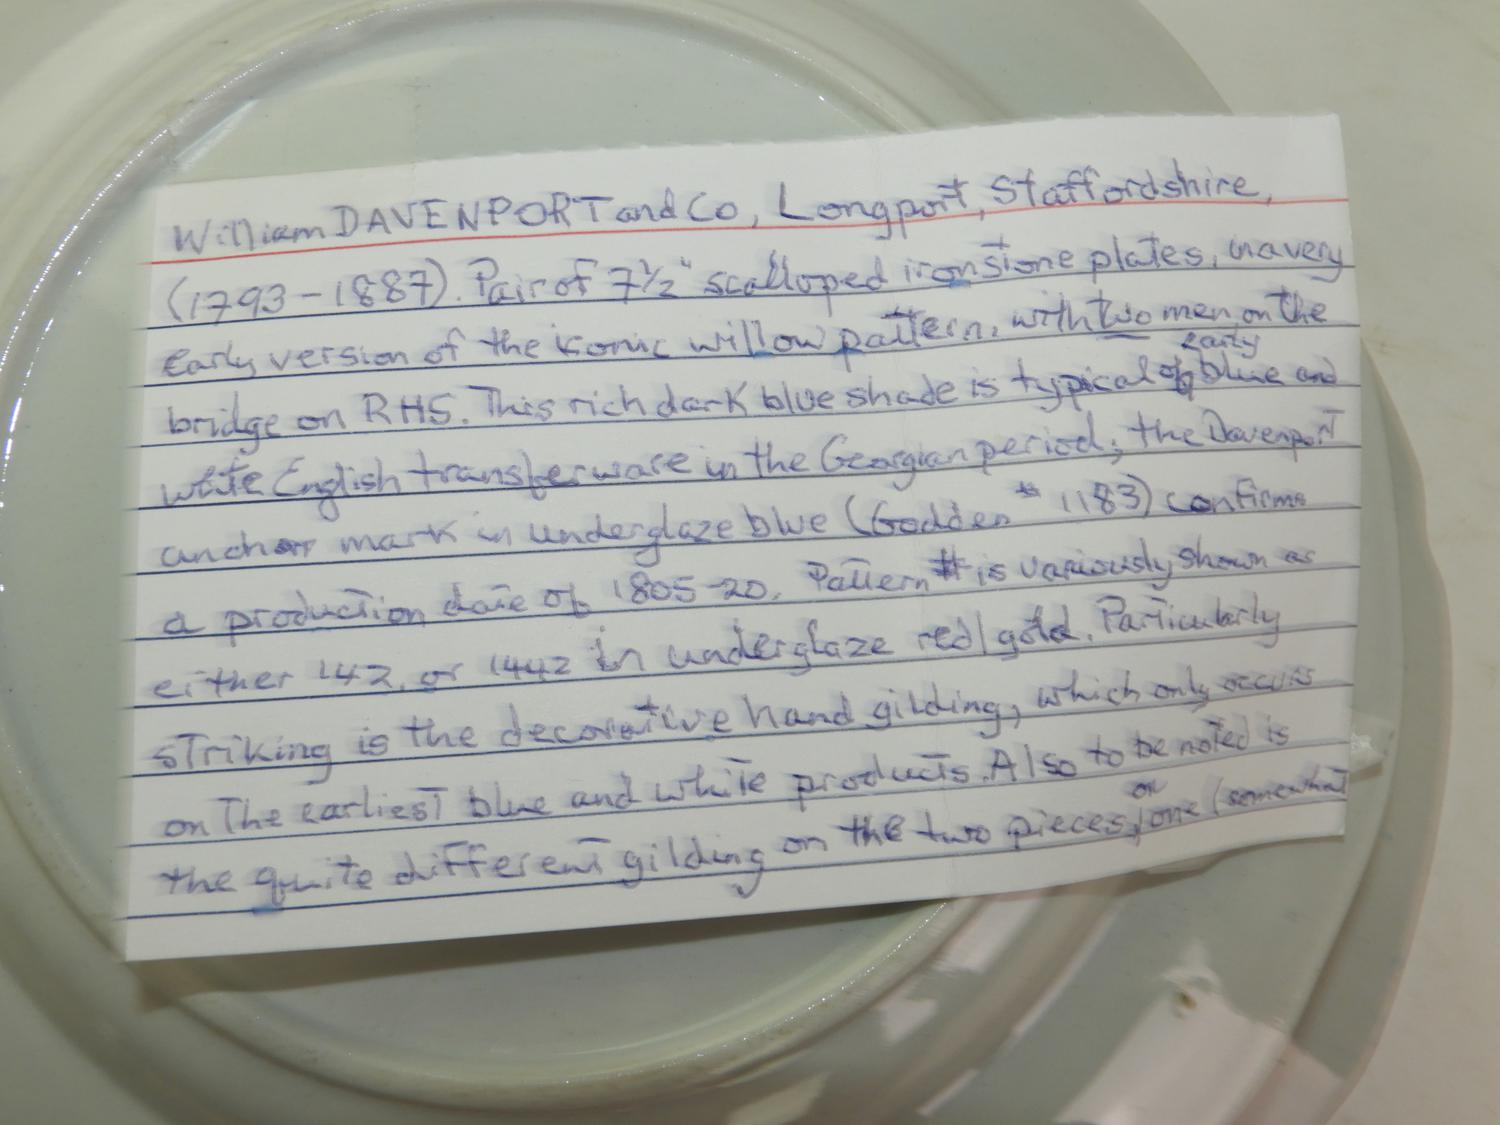 William DAVENPORT and Co, Longport, Staffordshire,
(1793-1887). Pair of 7½" scalloped ironstone plates, in a very
early version of the iconic willow pattern, with two men on the
bridge on RHS. This rich dark blue shade is typical of early blue and
white English transferware in the Georgian period; the Davenport
anchor mark in underglaze blue (Godden # 1183) confirms
a production date of 1805-20. Pattern # is variously shown as
either 142, or 1442 in underglaze red/gold. Particularly
striking is the decorative hand gilding, which only occurs
on the earliest blue and white products. Also to be noted is
the quite different gilding on the two pieces, on one (somewhat